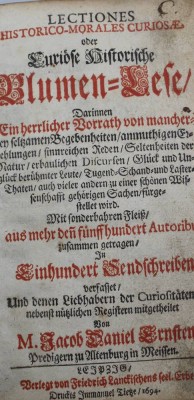 LECTIONES
HISTORICO-MORALES CURIOSÆ.
oder
Curiöse Historische
Blumen-Lese/
Darinnen
Ein herrlicher Vorrath von mancher-
en seltzamen Begebenheiten/anmuthigen Er-
ehlungen/sinnreichen Reden/Seltenheiten der
Natur/erbäulichen Discursen/Glück und Un-
glück berühmter Leute/Tugend-Schand-und Laster-
Thaten/auch vieler andern zu einer schönen Wis-
senschafft gehörigen Sachen/fürge-
stellet wird.
Mit sonderbahren Fleiß/
aus mehr den fünff hundert Autoribus
zusammen getragen/
In
Einhundert Sendschreiben
verfasset/
Und denen Liebhabern der Curiositäten
nebenst nützlichen Registern mitgetheilet
Von
M. Jacob Daniel Ernsten
Predigern zu Altenburg in Meissen.
LEIPZIG/
Verlegt von Friedrich Lanckischens seel. Erben
Druckts Immanuel Tietze/1694.